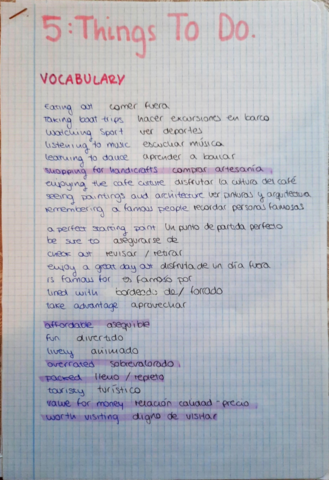 5: Things To Do.
VOCABULARY
Eating out comer fuera
Taking boat trips hacer excursiones en barco
Watching sport ver deportes
listening to music escuchar música
learning to dance aprender a bailar
shopping for handicrafts comprar artesanía
enjoying the café culture disfrutar la cultura del café
seeing paintings and architecture ver pinturas y arquitectura
remembering a famous people recordar personas famosas
a perfect starting point un punto de partida perfecto
be sure to asegurarse de
check out revisar / retirar
enjoy a great day out disfruta de un día fuera
is famous for es famoso por
lined with bordeado de / forrado
take advantage aprovechar
affordable asequible
fun divertido
lively animado
overrated sobrevalorado
packed lleno / repleto
touristy turístico
value for money relación calidad-precio
worth visiting digno de visitar